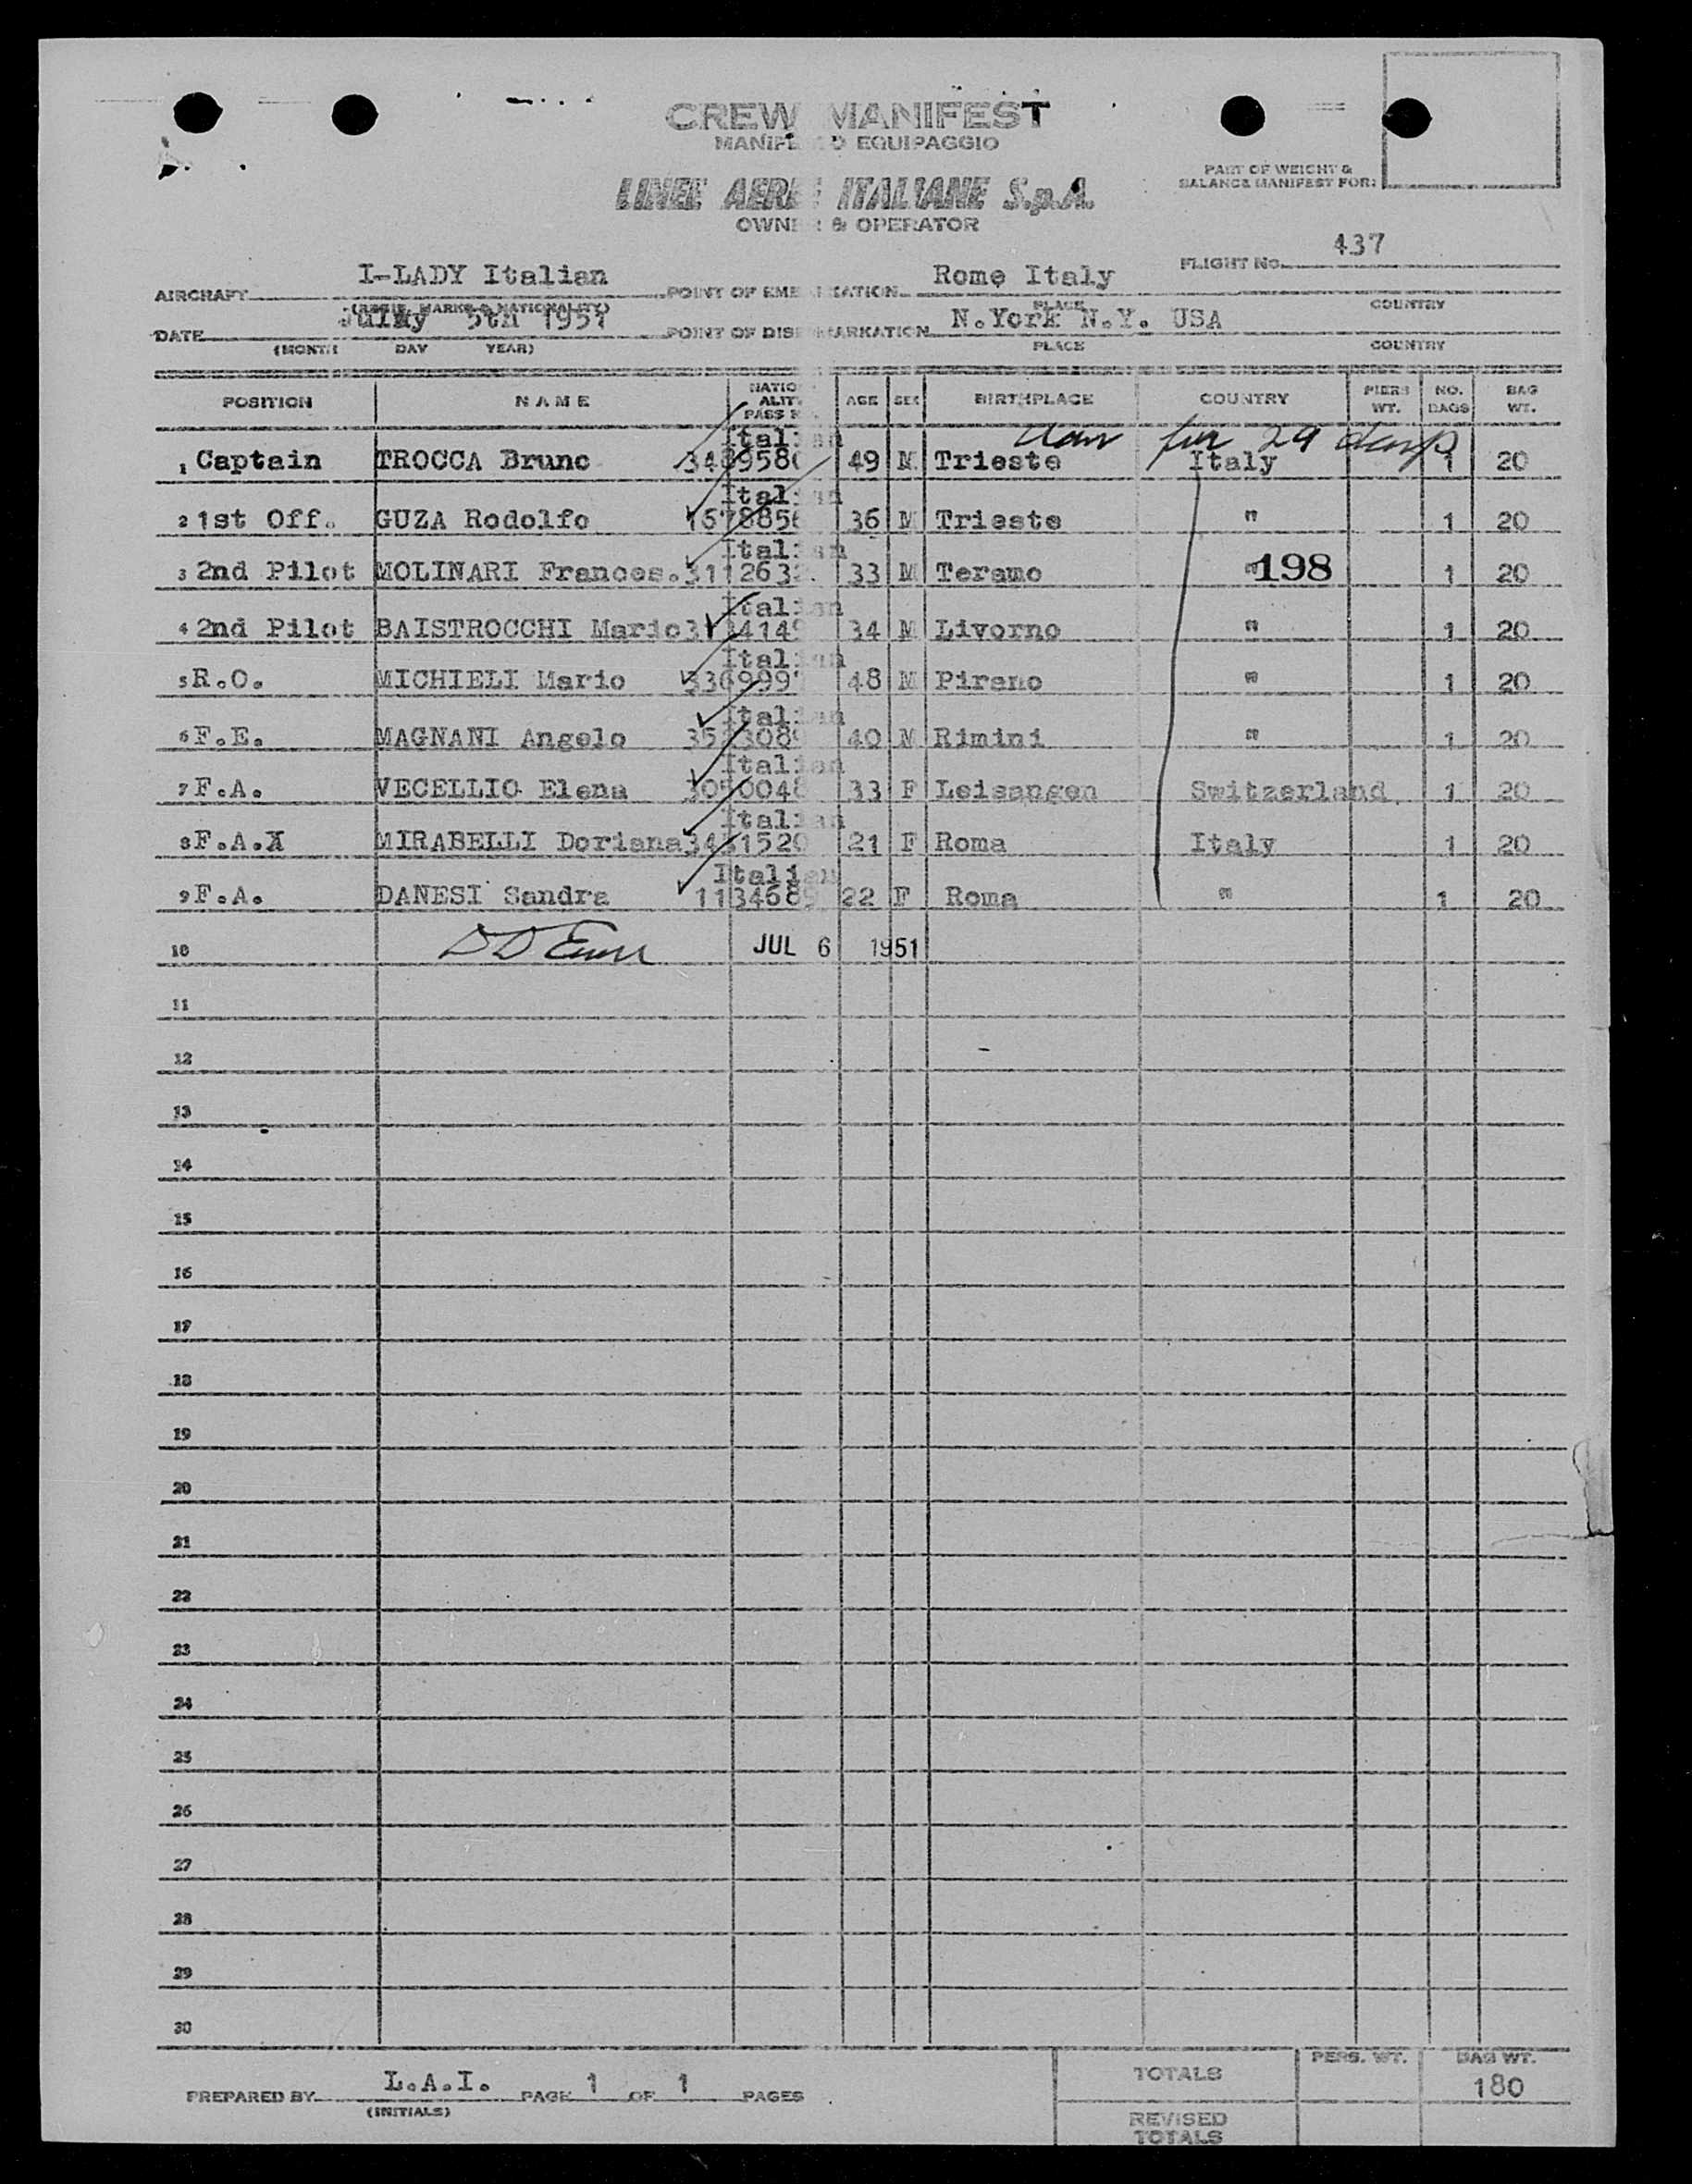 CREW MANIFEST
MANIFESTO EQUIPAGGIO
LINEE AEREE ITALIANE S.p.A.
OWNER & OPERATOR
PART OF WEIGHT &
BALANCE MANIFEST FOR:
FLIGHT No. 437
AIRCRAFT I-LADY Italian POINT OF EMBARKATION Rome Italy
(REGIS. MARKS & NATIONALITY) PLACE COUNTRY
DATE July 5th 1951 POINT OF DISEMBARKATION N.York N.Y. USA
(MONTH DAY YEAR) PLACE COUNTRY
POSITION NAME NATIONALITY PASS No. AGE SEX BIRTHPLACE COUNTRY PERS WT. NO. BAGS BAG WT.
for 29 days
Italian
1 Captain TROCCA Bruno 49 M Trieste Italy 1 20
Italian
2 1st Off. GUZA Rodolfo 36 M Trieste " 1 20
Italian
3 2nd Pilot MOLINARI Frances. 33 M Teramo " 198 1 20
Italian
4 2nd Pilot BAISTROCCHI Mario 34 M Livorno " 1 20
Italian
5 R.O. MICHIELI Mario 48 M Pirano " 1 20
Italian
6 F.E. MAGNANI Angelo 40 M Rimini " 1 20
Italian
7 F.A. VECELLIO Elena 33 F Leisangen Switzerland 1 20
Italian
8 F.A. MIRABELLI Doriana 21 F Roma Italy 1 20
Italian
9 F.A. DANESI Sandra 1134689 22 F Roma " 1 20
10 JUL 6 1951
11
12
13
14
15
16
17
18
19
20
21
22
23
24
25
26
27
28
29
30
PREPARED BY L.A.I. PAGE 1 OF 1 PAGES
(INITIALS)
TOTALS PERS. WT. BAG WT. 180
REVISED TOTALS